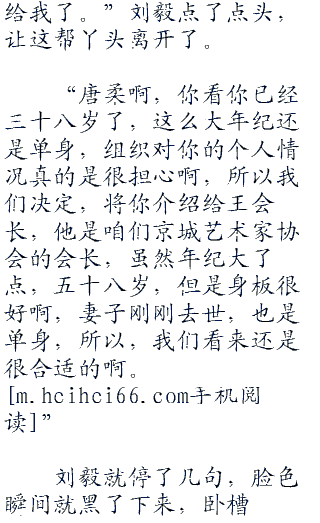 给我了。”刘毅点了点头，
让这帮丫头离开了。
“唐柔啊，你看你已经
三十八岁了，这么大年纪还
是单身，组织对你的个人情
况真的是很担心啊，所以我
们决定，将你介绍给王会
长，他是咱们京城艺术家协
会的会长，虽然年纪大了
点，五十八岁，但是身板很
好啊，妻子刚刚去世，也是
单身，所以，我们看来还是
很合适的啊。
[m.hcihci66.com手机阅
读]”
刘毅就停了几句，脸色
瞬间就黑了下来，卧槽